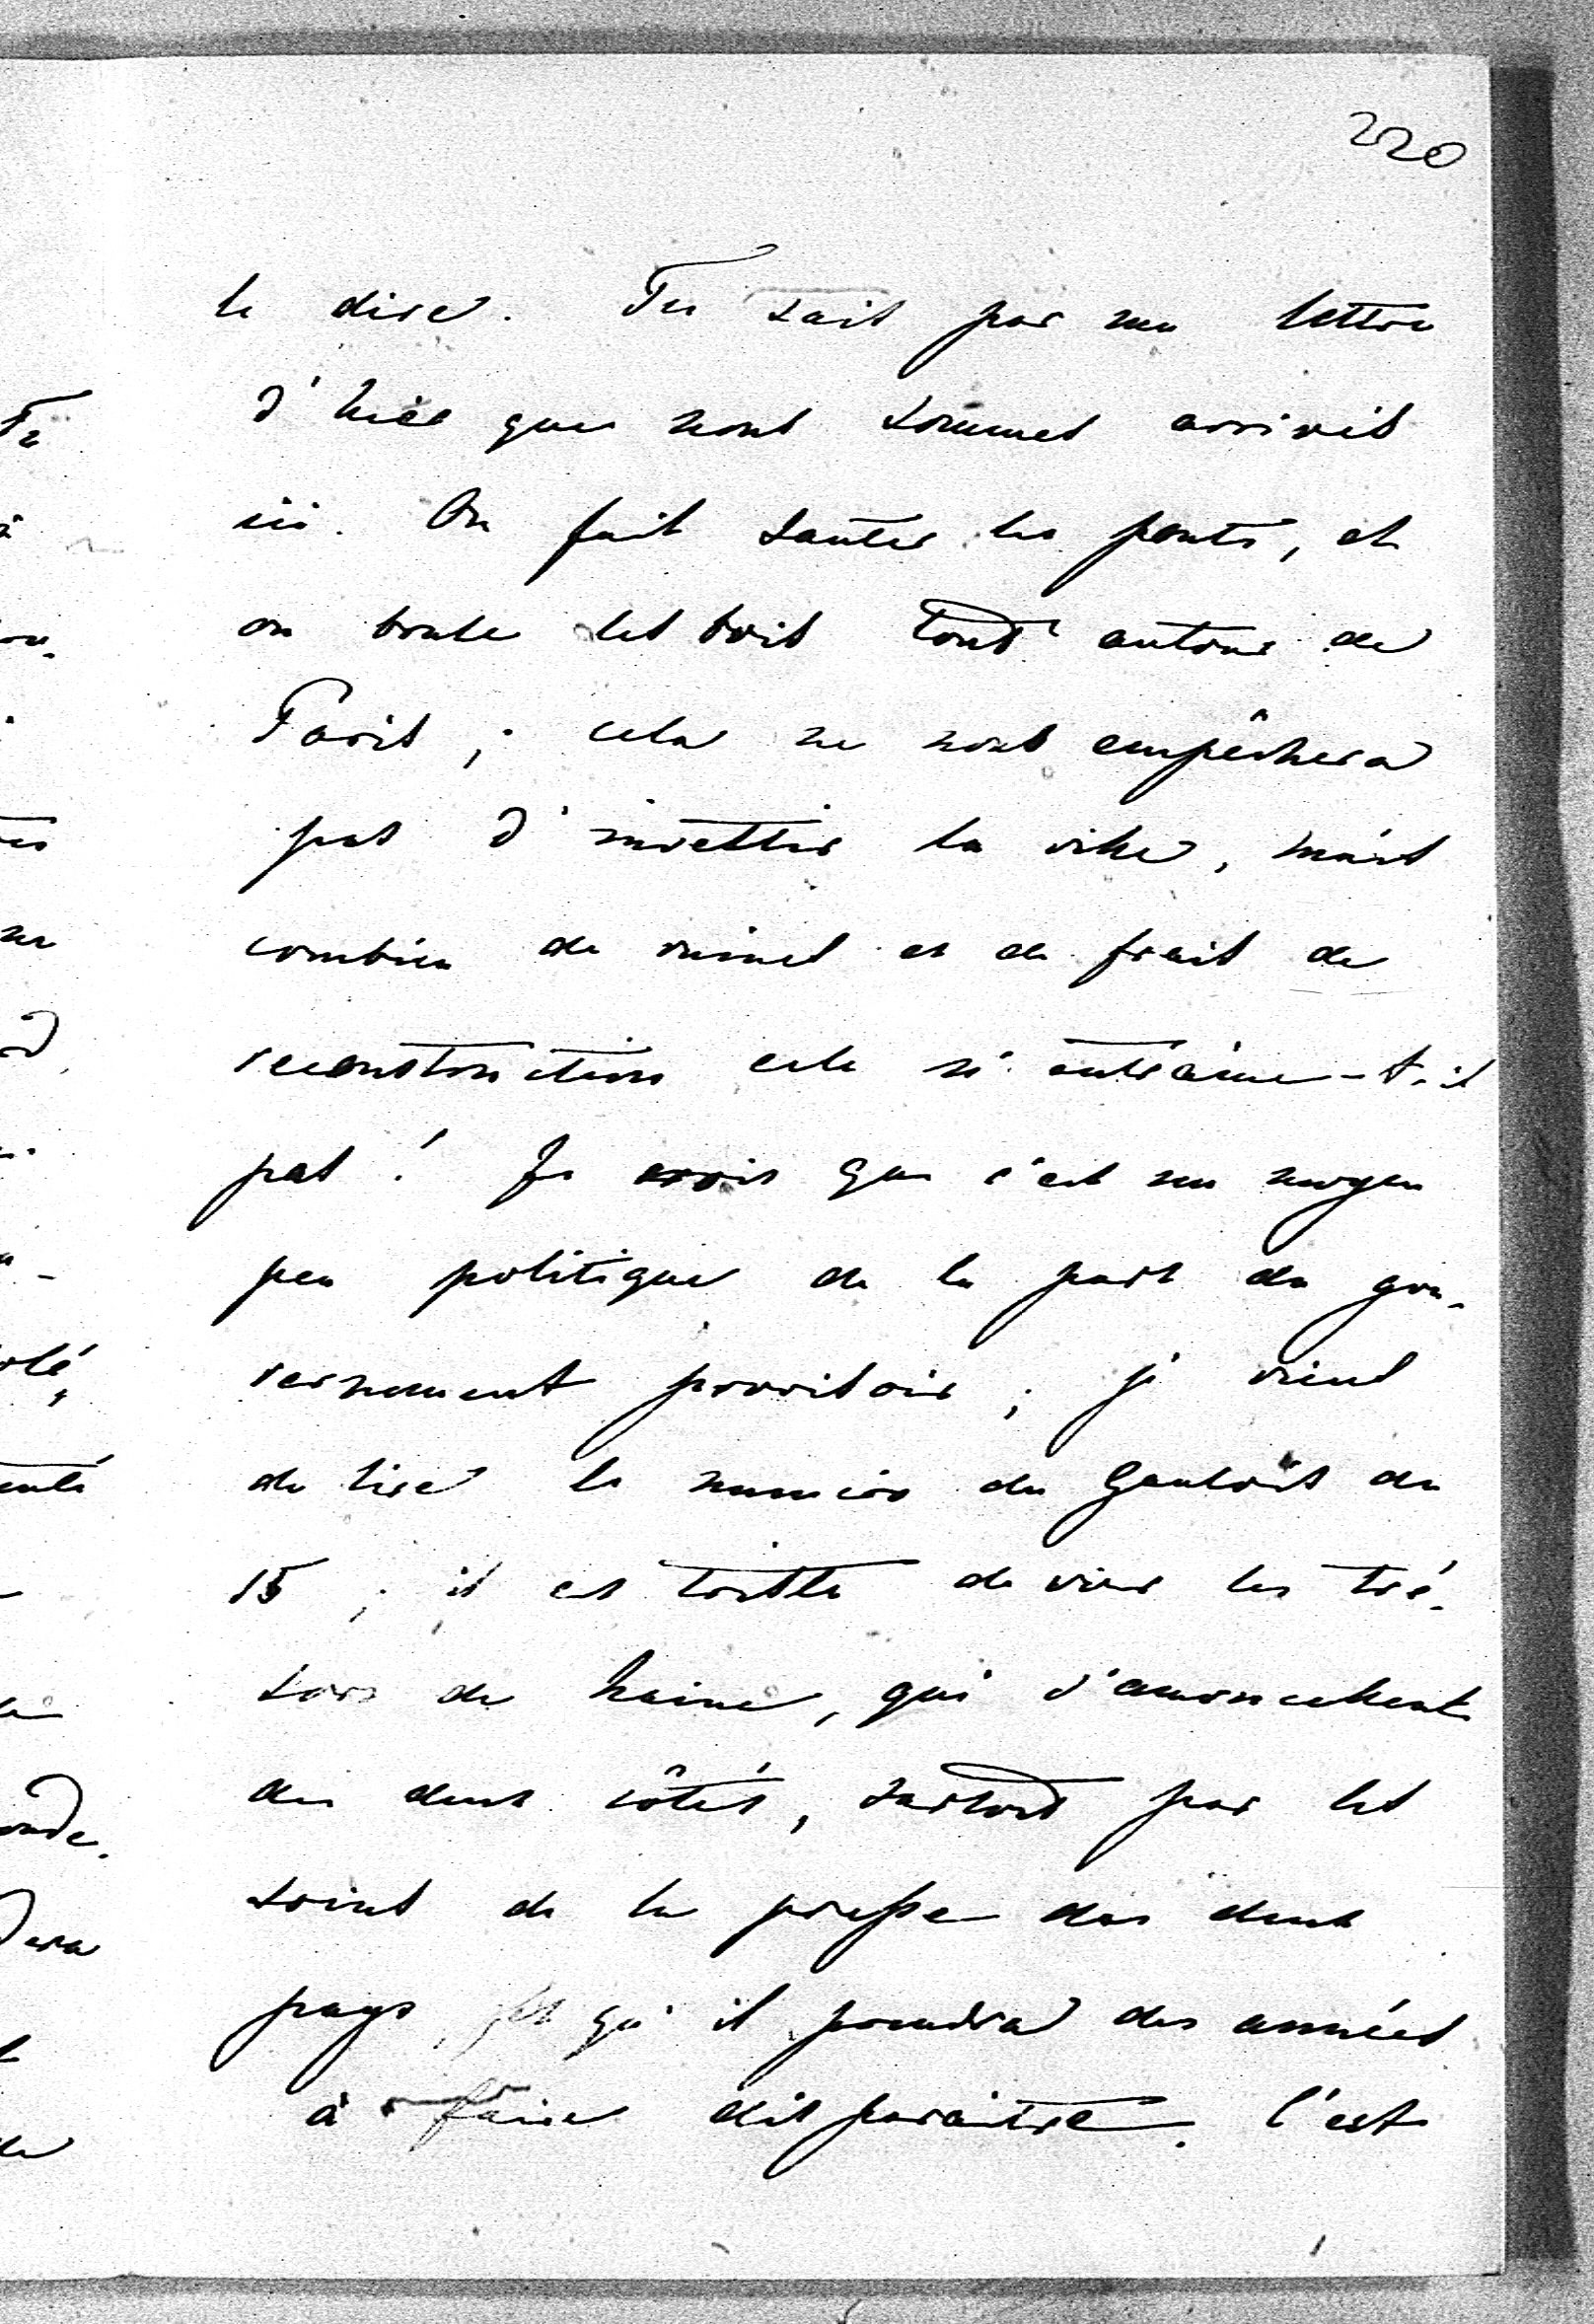 220
le dire. Tu sais par ma lettre
d'hier que nous sommes arrivés
ici. On fait sauter les ponts, et
on brule les bois tout autour de
Paris ; cela ne nous empêchera
pas d'investir la ville, mais
combien de ruines et de frais de
reconstruction cela n'entraine-t-il
pas ! Je crois que c'est un moyen
peu politique de la part du gou-
vernement provisoire ; je viens
de lire le numéro du Gaulois du
15 ; il est triste de voir les tré-
sors de haine, qui s'amoncellent
des deux côtés, surtout par les
soins de la presse des deux
pays, et qu'il prendra des années
à faire disparaitre. C'est